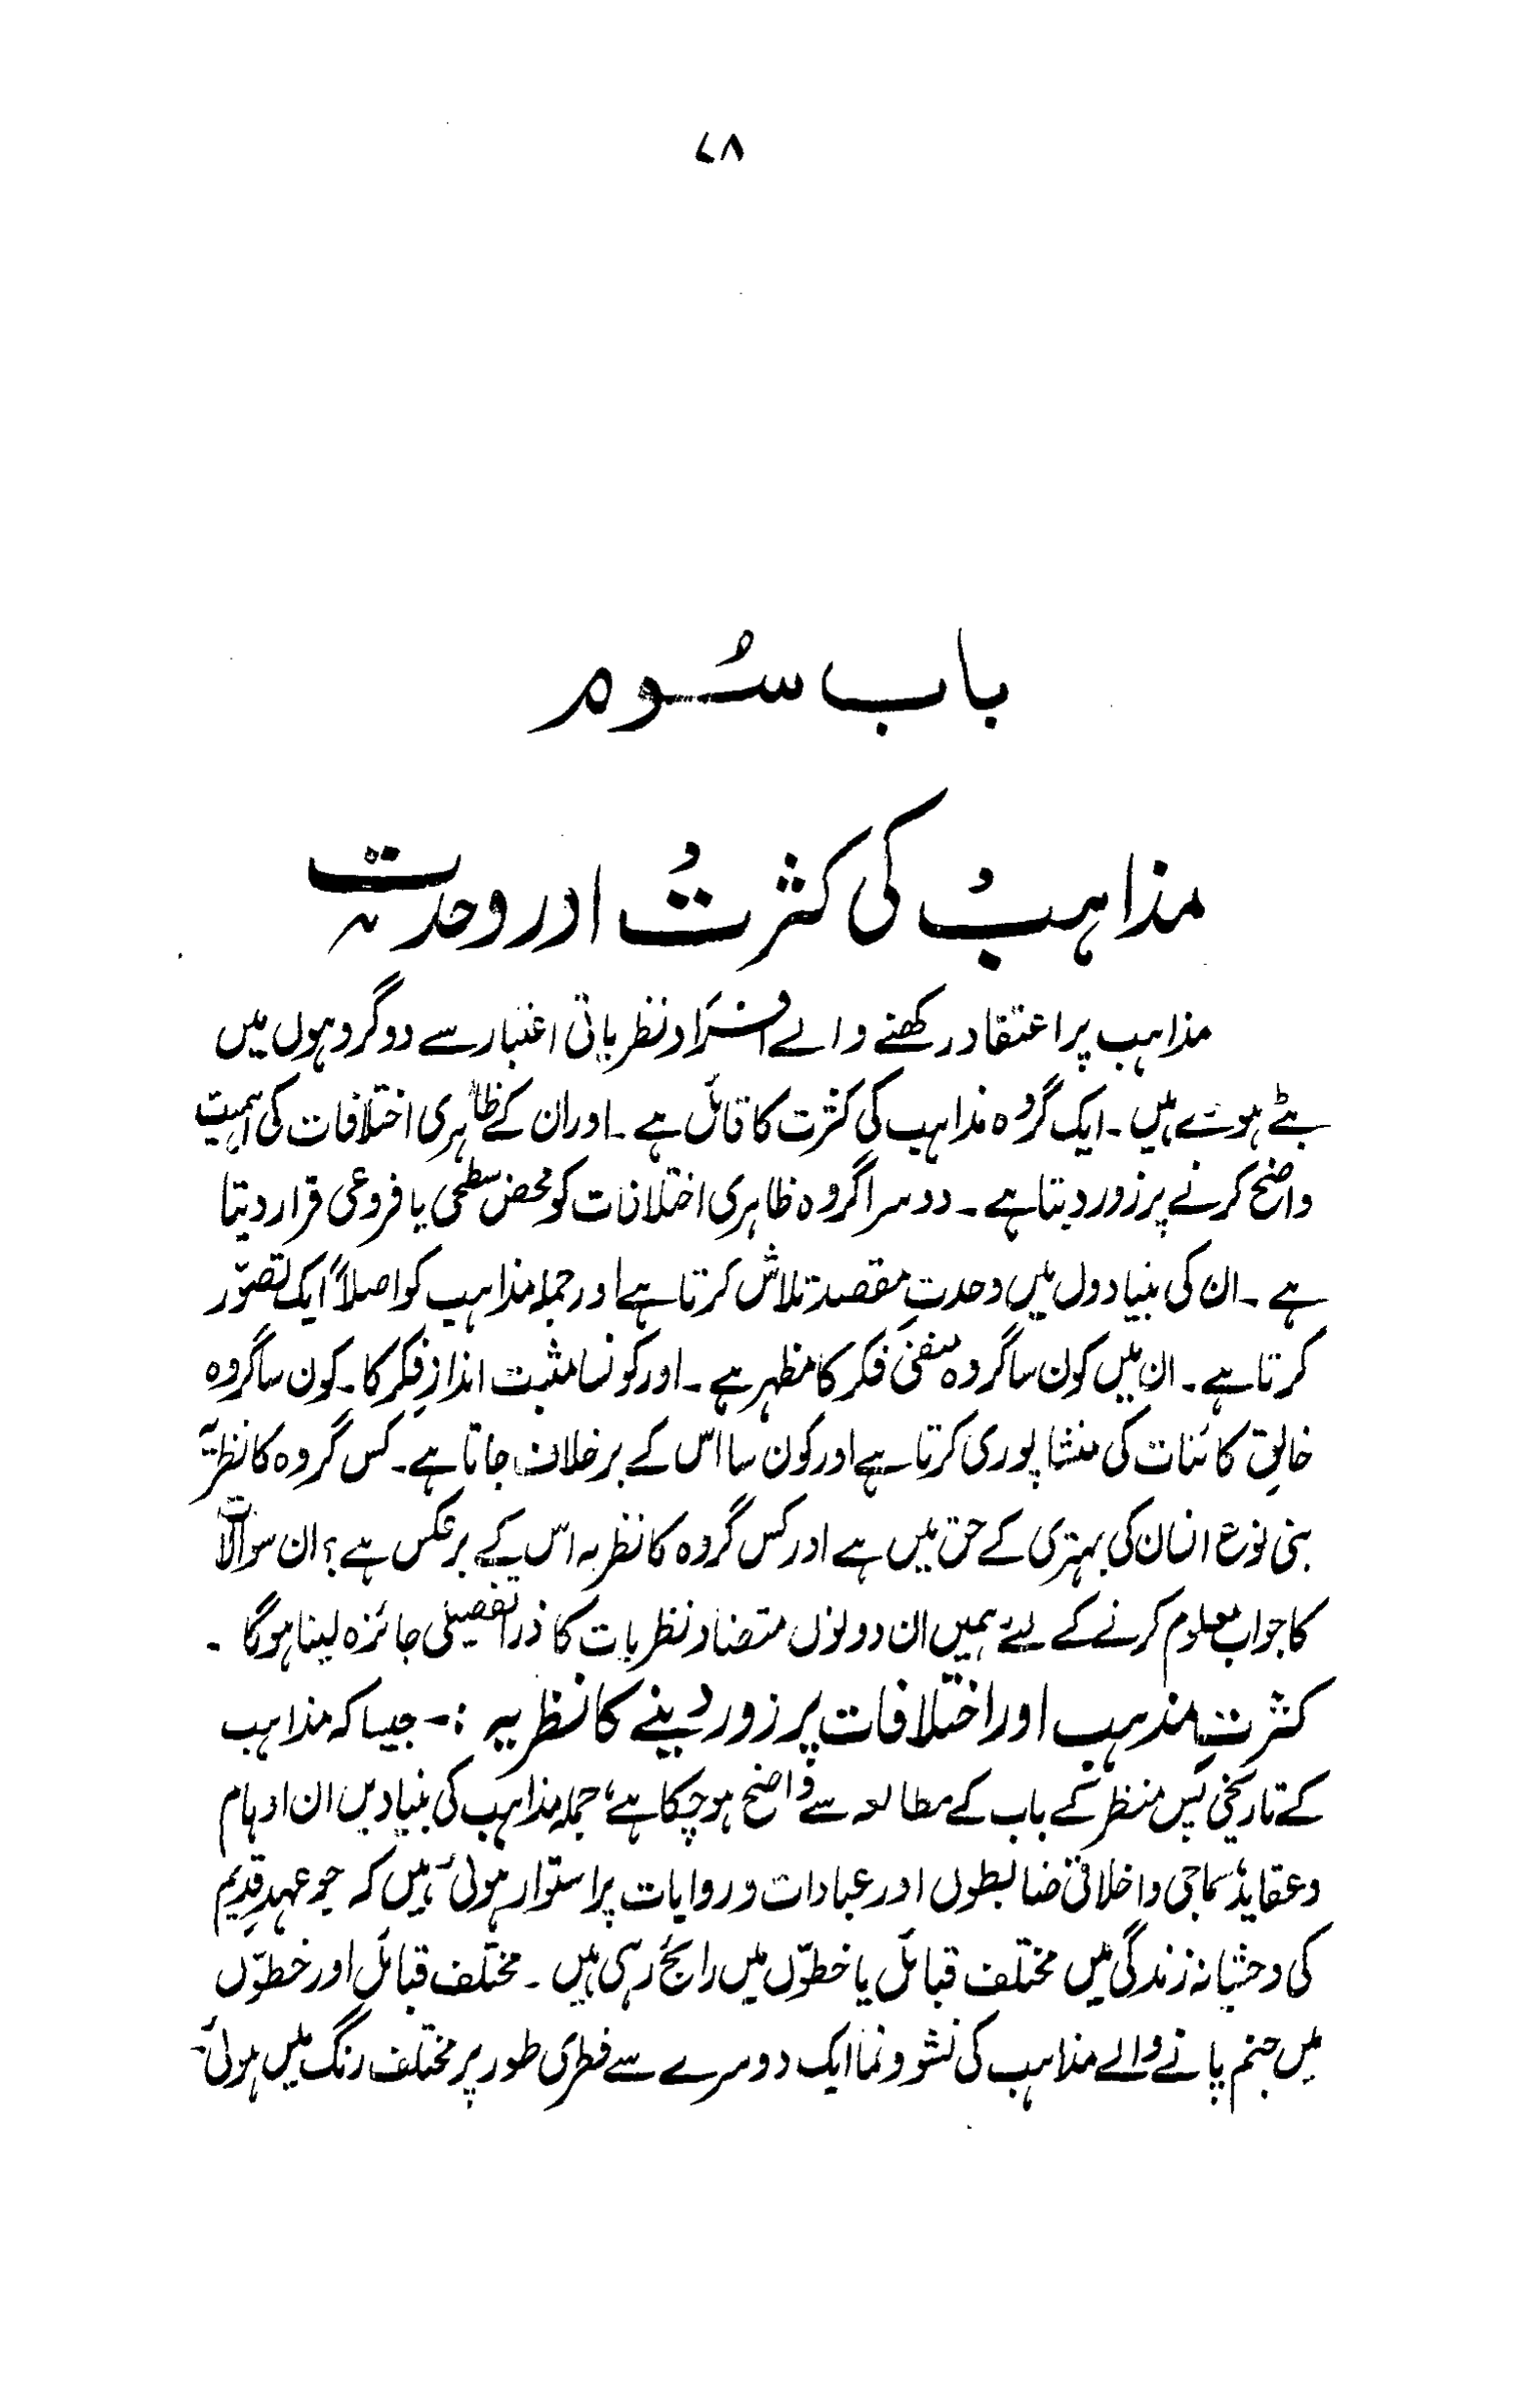 ۷۸
باب سُوم
مذاہبُ کی کثرتُ اور وحدت
مذاہب پر اعتقاد رکھنے والے افراد نظریاتی اعتبار سے دو گروہوں میں
بٹے ہوئے ہیں ۔ ایک گروہ مذاہب کی کثرت کا قائل ہے ۔ اور ان کے ظاہری اختلافات کی اہمیت
واضح کرنے پر زور دیتا ہے ۔ دوسرا گروہ ظاہری اختلافات کو محض سطحی یا فروعی قرار دیتا
ہے ۔ ان کی بنیادوں میں وحدتِ مقصد تلاش کرتا ہے اور جملہ مذاہب کو اصلاً ایک تصوّر
کرتا ہے ۔ ان میں کون سا گروہ منفی فکر کا مظہر ہے ۔ اور کونسا مثبت اندازِ فکر کا ۔ کون سا گروہ
خالقِ کائنات کی منشا پوری کرتا ہے اور کون سا اس کے برخلاف جاتا ہے ۔ کس گروہ کا نظریہ
بنی نوع انسان کی بہتری کے حق میں ہے اور کس گروہ کا نظریہ اس کے برعکس ہے ؟ ان سوالات
کا جواب معلوم کرنے کے لیئے ہمیں ان دونوں متضاد نظریات کا ذرا تفصیلی جائزہ لینا ہوگا ۔
کثرتِ مذہب اور اختلافات پر زور دینے کا نظریہ :- جیسا کہ مذاہب
کے تاریخی پس منظر کے باب کے مطالعہ سے واضح ہوچکا ہے، جملہ مذاہب کی بنیادیں ان اوہام
و عقاید، سماجی و اخلاقی ضابطوں اور عبادات و روایات پر استوار ہوئی ہیں کہ جو عہدِ قدیم
کی وحشیانہ زندگی میں مختلف قبائل یا خطوّں میں رائج رہی ہیں ۔ مختلف قبائل اور خطوّں
میں جنم پانے والے مذاہب کی نشوونما ایک دوسرے سے فطری طور پر مختلف رنگ میں ہوئی